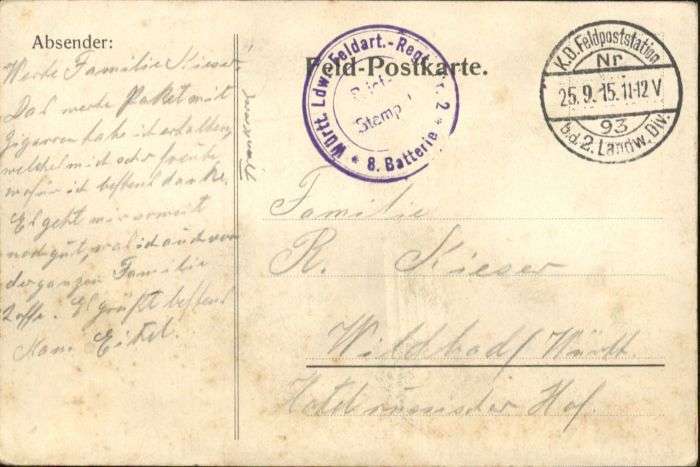 Absender:
Werte Familie Kieser.
Das werte Paket mit
Zigarren habe ich erhalten,
welches mich sehr freute,
wofür ich bestens danke.
Es geht mir soweit
noch gut, was ich auch von
der ganzen Familie
hoffe. Es grüßt bestens
Eitel.
Feld-Postkarte.
Württ. Ldw. Feldart.-Reg. Nr. 2
Brief-
Stempel
* 8. Batterie *
K.D. Feldpoststation
Nr
25.9.15.11-12V
93
b.d.2. Landw. Div.
Familie
R. Kieser
Wildbad/Württ.
Hotel
Hof.